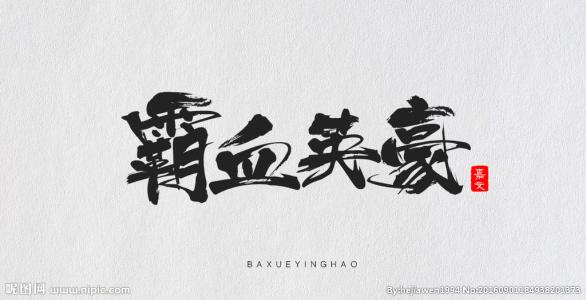 霸血英豪
嘉文
BAXUEYINGHAO
昵图网 www.nipic.com
By:hejiawen1994 No:20160901184938201373